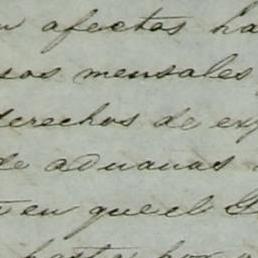 afectos ha
sos mensuales
derechos de exp
de aduanas
en que el G
hasta por